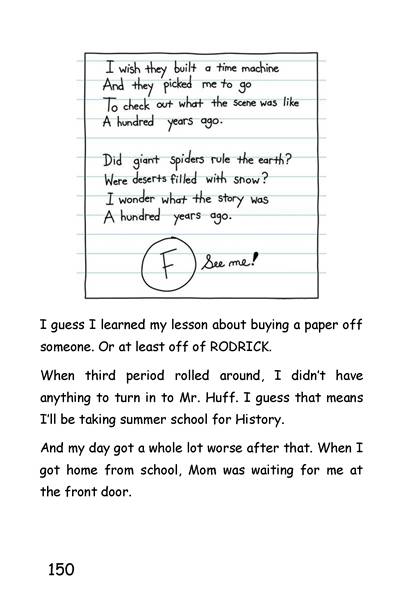 I wish they built a time machine
And they picked me to go
To check out what the scene was like
A hundred years ago.
Did giant spiders rule the earth?
Were deserts filled with snow?
I wonder what the story was
A hundred years ago.
F
See me!
I guess I learned my lesson about buying a paper off
someone. Or at least off of RODRICK.
When third period rolled around, I didn't have
anything to turn in to Mr. Huff. I guess that means
I'll be taking summer school for History.
And my day got a whole lot worse after that. When I
got home from school, Mom was waiting for me at
the front door.
150